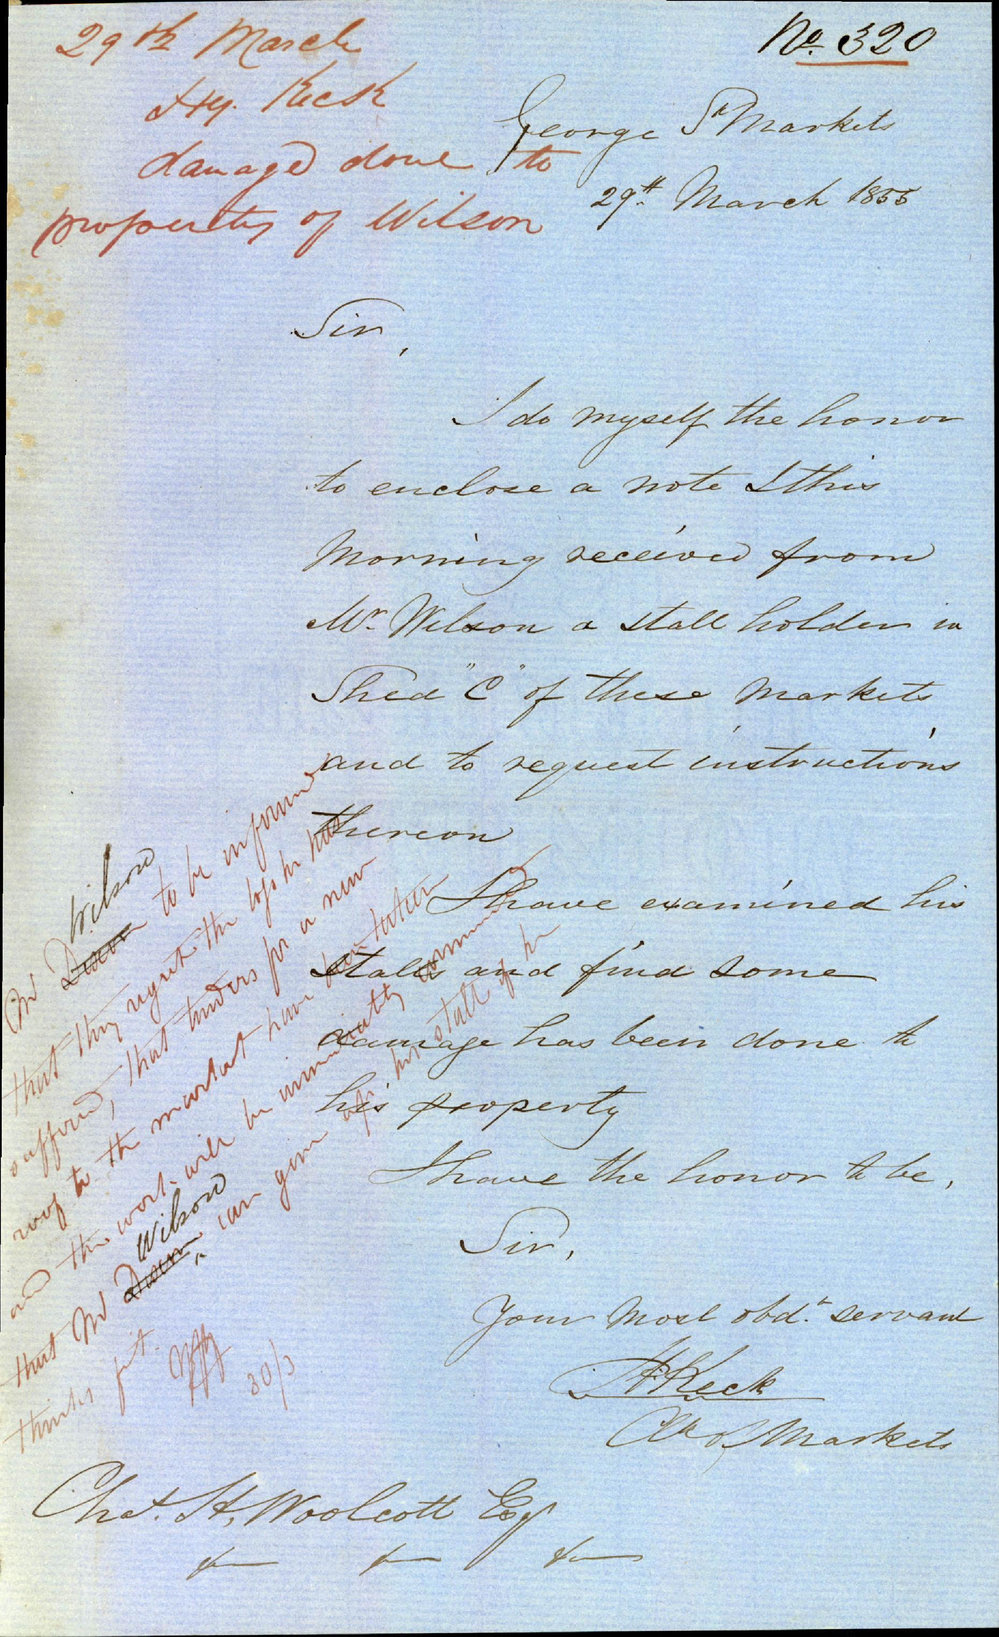 29th March
Hy. Keck
damage done to
property of Wilson
No. 320
George St Markets
29th March 1855
Sir,
I do myself the honor
to enclose a note I this
Morning received from
Mr. Wilson a stall holder in
Shed "C" of these Markets
and to request instructions
thereon
I have examined his
stalls and find some
damage has been done to
his property
I have the honor to be,
Sir,
Your Most obdt. servant
H Keck
Clk of Markets
Chas. H. Woolcott Esqr
&c &c &c
Wilson
Mr Dixon to be informed
that they regret the loss he has
suffered, that tenders for a new
roof to the market have been taken
and the work will be immediately commenced
Wilson
that Mr Dixon can give up his stall if he
thinks fit.
30/3